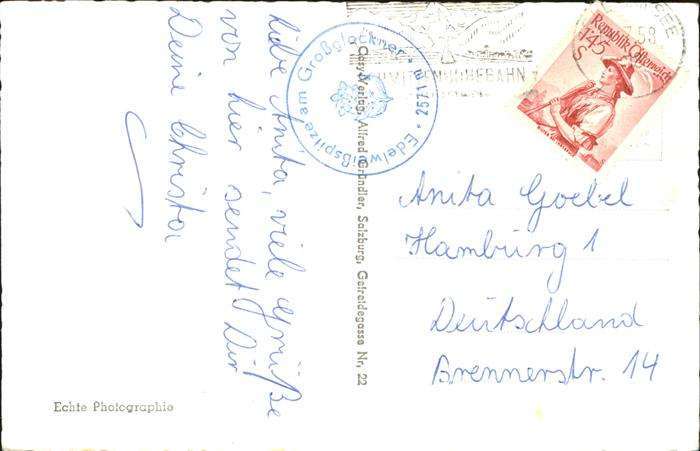 Liebe Anita, viele Grüße
von hier sendet Dir
Deine Christa
Edelweißspitze am Großglockner • 2571 m •
Cosy-Verlag, Alfred Gründler, Salzburg, Getreidegasse Nr. 22
Republik Österreich
1.45
S
SEE
58
Anita Goebel
Hamburg 1
Deutschland
Brennerstr. 14
Echte Photographie